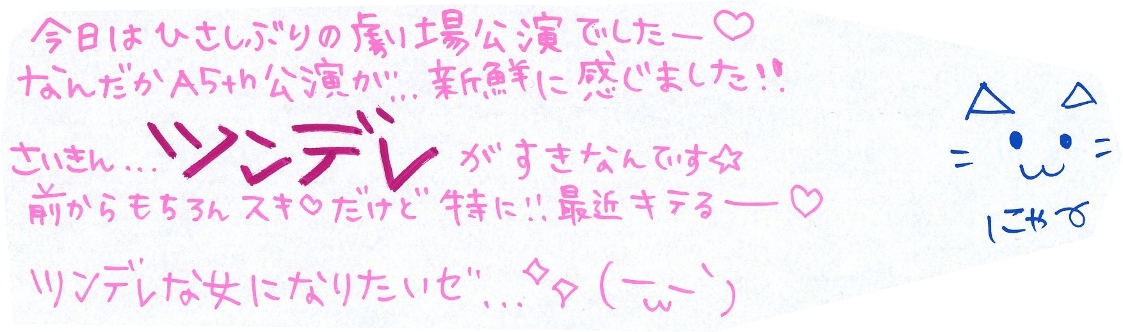 今日はひさしぶりの劇場公演でしたー♡
なんだかA5th公演が...新鮮に感じました!!
さいきん...ツンデレがすきなんです☆
前からもちろんスキ♡だけど特に!!最近キテるー♡
ツンデレな女になりたいゼ...✧✧(￣ω￣｀)
にゃー